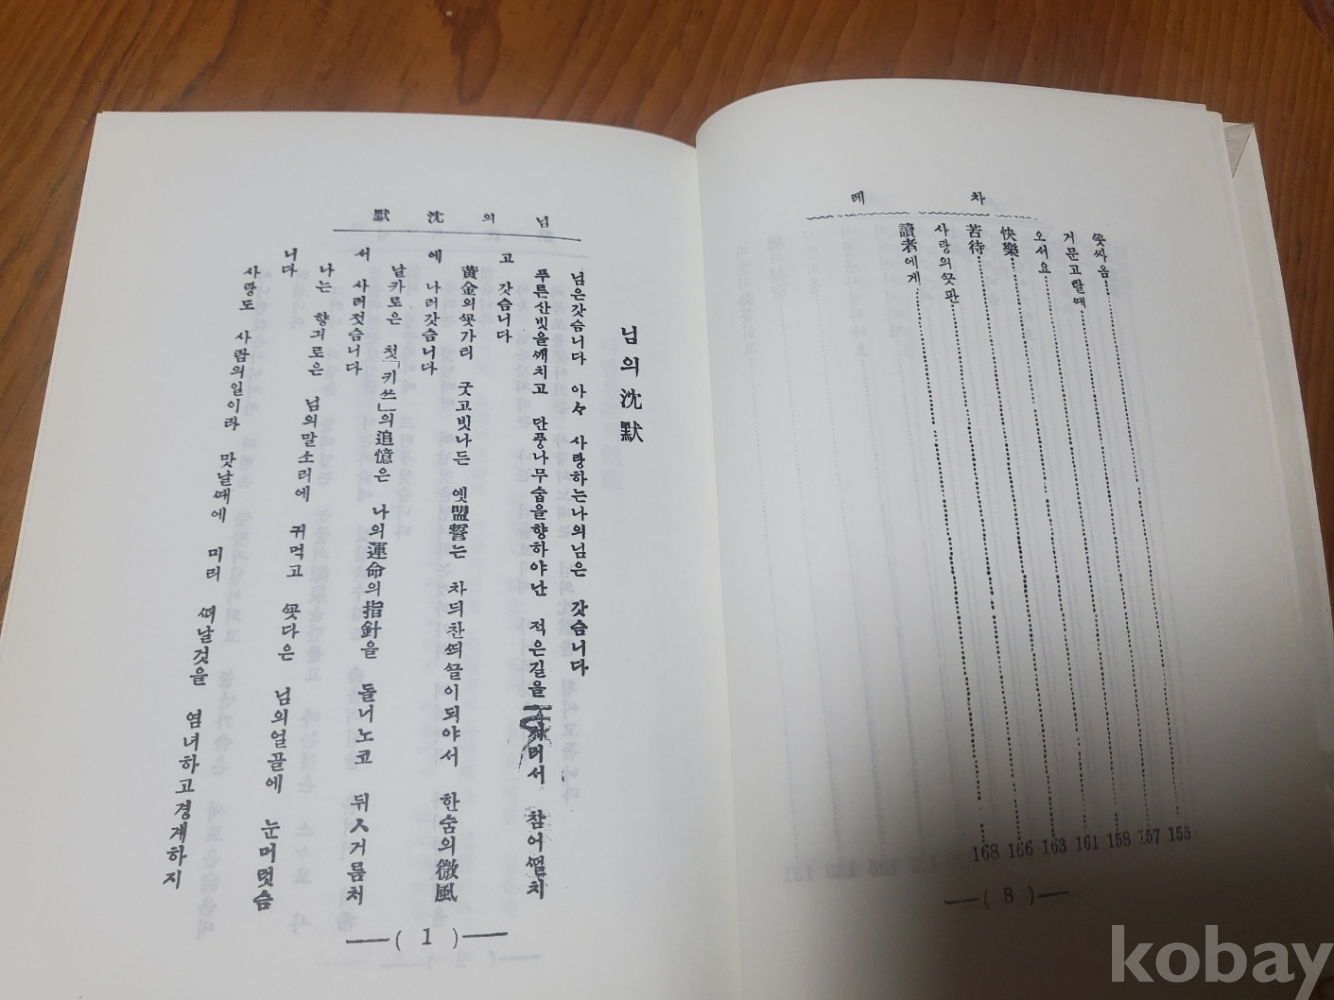 차례
ᄭᅩᆺ싸옴 155
거문고탈ᄯᅢ 157
오서요 158
快樂 161
苦待 163
사랑의ᄭᅳᆺ판 166
讀者에게 168
( 8 )
님의沈默
님의沈默
님은갓슴니다 아々 사랑하는나의님은 갓슴니다
푸른산빗을ᄭᅢ치고 단풍나무숩을향하야난 적은길을 거러서 참어ᄯᅥᆯ치
고 갓슴니다
黃金의ᄭᅩᆺ가티 굿고빗나든 옛盟誓는 차듸찬ᄯᅴᄭᅳᆯ이되야서 한숨의微風
에 나러갓슴니다
날카로은 첫「키쓰」의追憶은 나의運命의指針을 돌너노코 뒤ㅅ거름처
서 사러젓슴니다
나는 향긔로은 님의말소리에 귀먹고 ᄭᅩᆺ다은 님의얼골에 눈머럿슴
니다
사랑도 사람의일이라 맛날ᄯᅢ에 미리 ᄯᅥ날것을 염녀하고경계하지
( 1 )
kobay